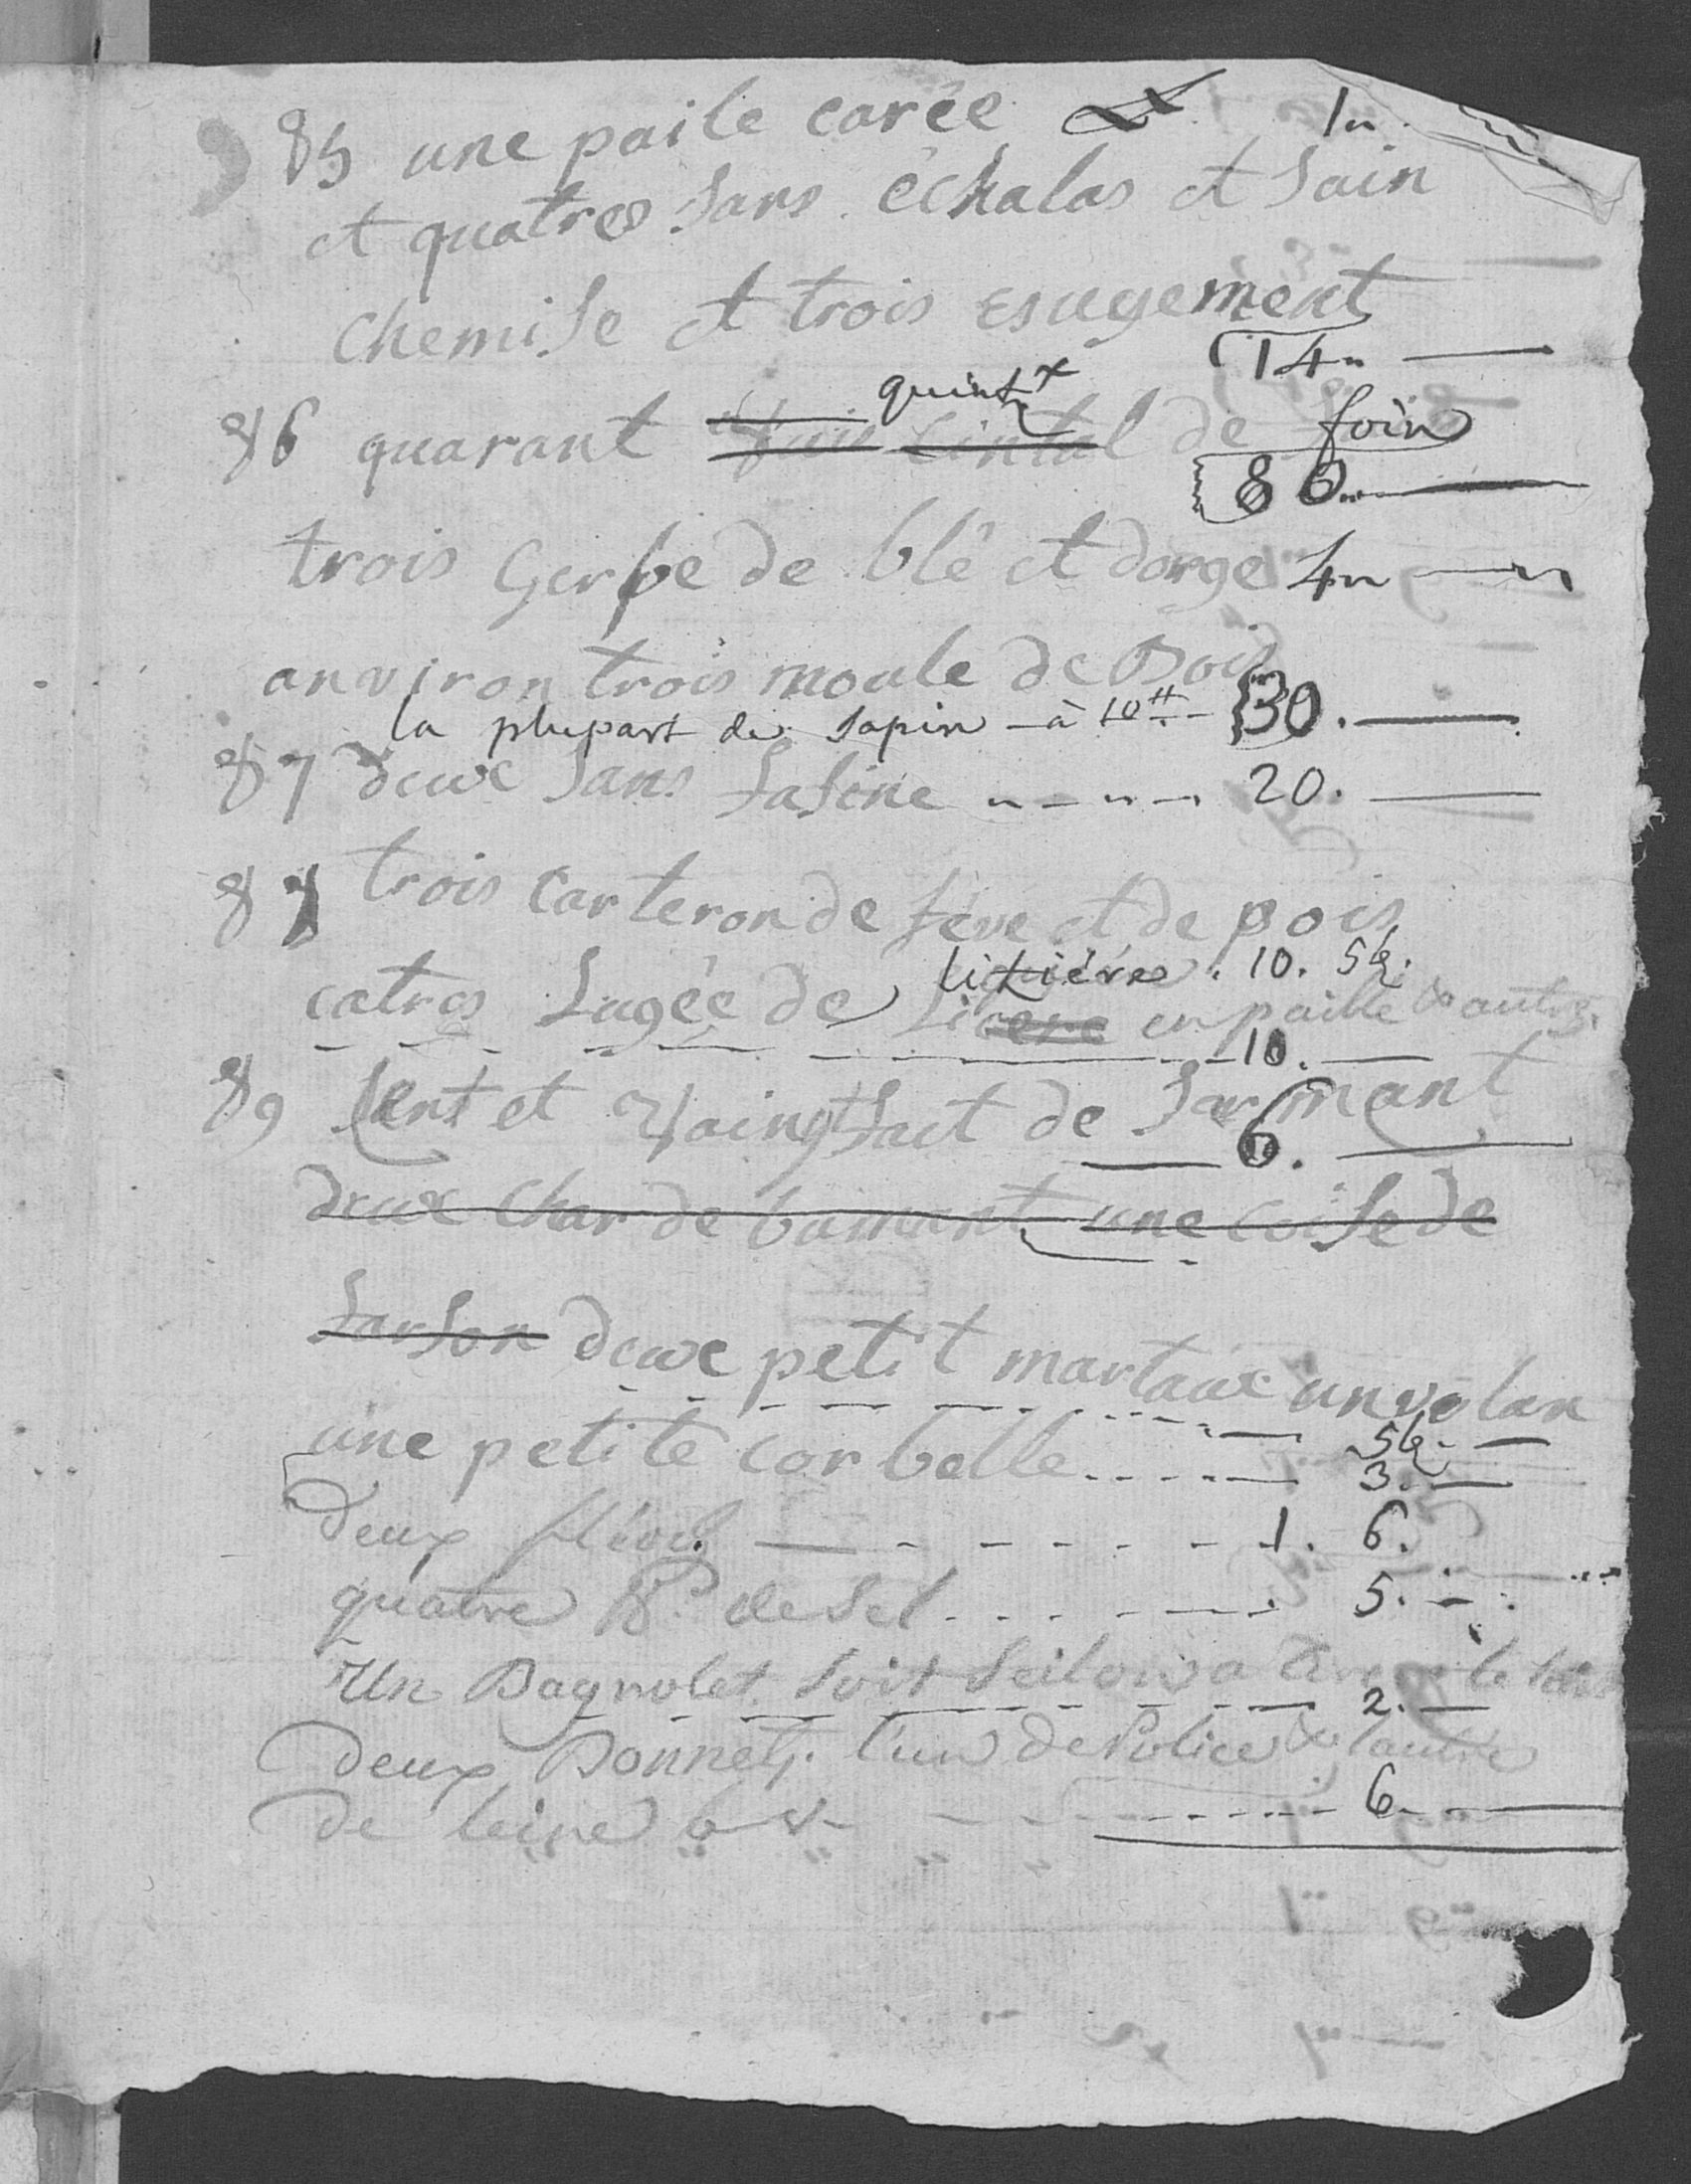 85 une paile carée 1"
et quatres sans échalas et sain
chemise et trois esuyement
14"
quint^x
86 quarant cintal de foin
80.
trois Gerbe de blé et dorge 4"
anviron trois moule de Bois
la plupart de sapin - à 10^# 30.
87 deux sans fasine 20.
88 trois carteron de fève et de pois
litière 10. 5 6.
catres Lugée de en paille & autre
10.
89 sent et vaingt fait de sarmant
6.
deux char de bamant une coise de
farson deux petit martaux un volan
5 6.
une petite corbelle 3.
deux flével 1. 6.
quatre de sel 5.
Un Bagnolet soit seilon a
2.
deux Bonnets. l'un de Police & l'autre
6.
de leine